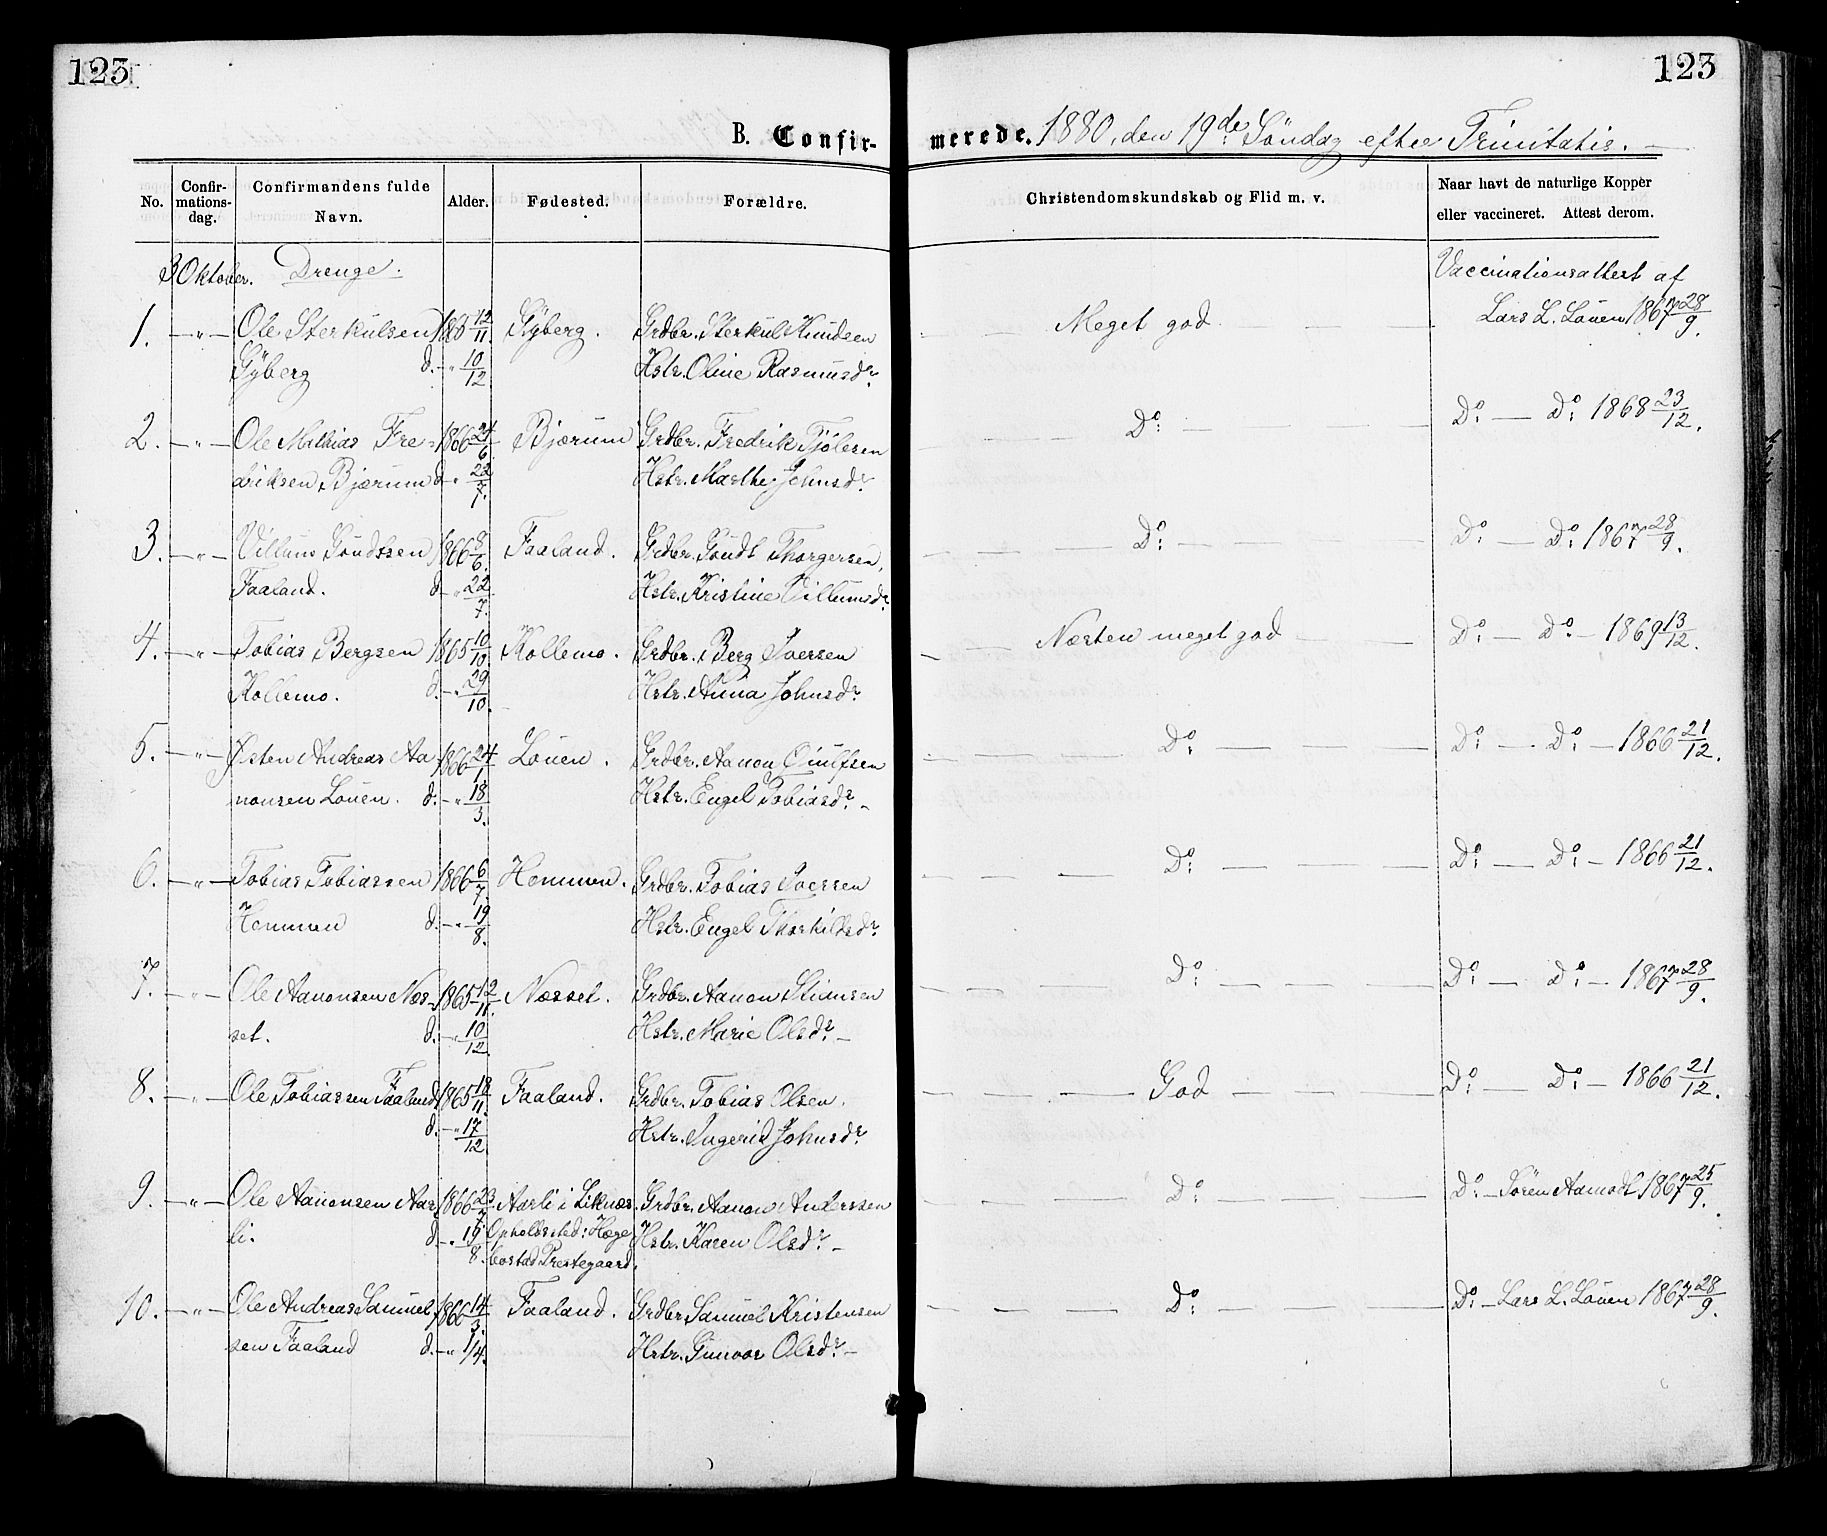 123
123
B. Confir- merede. 1880, den 19de Söndag efter Trinitatis.
No. | Confir-mations-dag. | Confirmandens fulde Navn. | Alder. | Fødested. | Forældre. | Christendomskundskab og Flid m. v. | Naar havt de naturlige Kopper eller vaccineret. Attest derom.
3 Oktober. Drenge. Vaccinationsattest af
1. — " — Ole Sterkulsen 1865 12/11. Gyberg. Grdbr. Sterkul Knudsen — Meget god — Lars L. Louen 1867 28/9.
Gyberg d. — " 10/12 Hstr. Oline Rasmusdr.
2. — " — Ole Mathias Fre- 1866 24/6 Bjærum Grdbr. Fredrik Tjölsen — Do: — Do — Do: 1868 23/12.
driksen Bjærum d — " 22/7. Hstr. Marthe Johnsdr.
3. — " — Villum Gundssen 1866 8/6. Faaland. Grdbr. Gundt Thorgersen, — Do: — Do: — Do: 1867 28/9.
Faaland. d — " 22/7. Hstr. Kristine Villumsdr.
4. — " — Tobias Bergsen 1865 10/10 Kollemo. Grdbr. Berg Iversen — Næsten meget god — Do: — Do. — 1869 13/12.
Kollemo. d. — " 29/10. Hstr. Anna Johnsdr.
5. — " — Østen Andreas Aa 1866 24/1 Louen. Grdbr. Aanon Omulfsen — Do: — Do: — Do: — 1866 21/12.
nonsen Louen. d. — " 18/3. Hstr. Engel Tobiasdr. —
6. — " — Tobias Tobiassen 1866 6/7. Hommen. Grdbr. Tobias Iversen — Do: — Do: — Do: — 1866 21/12.
Hommen d. — " 19/8. Hstr. Engel Thorkildsdr.
7. — " — Ole Aanonsen Næs- 1865 12/11. Næsset. Grdbr. Aanon Stiansen — Do: — Do: — Do. — 1867 28/9.
set. d. — " 10/12. Hstr. Marie Olsdr. —
8. — " — Ole Tobiassen Faaland. 1865 18/11. Faaland. Grdbr. Tobias Olsen. — God — Do: — Do: — 1866 21/12.
d. — " 17/12. Hstr. Ingerid Johnsdr.
9. — " — Ole Aanonsen Aar 1866 23/7 Aarli i Liknæs. Grdbr. Aanon Anderssen — Do: — Do: — Sören Aamodt 1867 25/9.
li. d — " 19/8. Opholdssted: Hæge Hstr. Karen Olsdr. —
bostad Prestegaard.
10. — " — Ole Andreas Samuel 1866 14/3. Faaland. Grdbr Samuel Kristensen — Do: — Do: — Lars L. Louen 1867 28/9.
sen Faaland d. — " 1/4. Hstr. Gunvor Olsdr. —